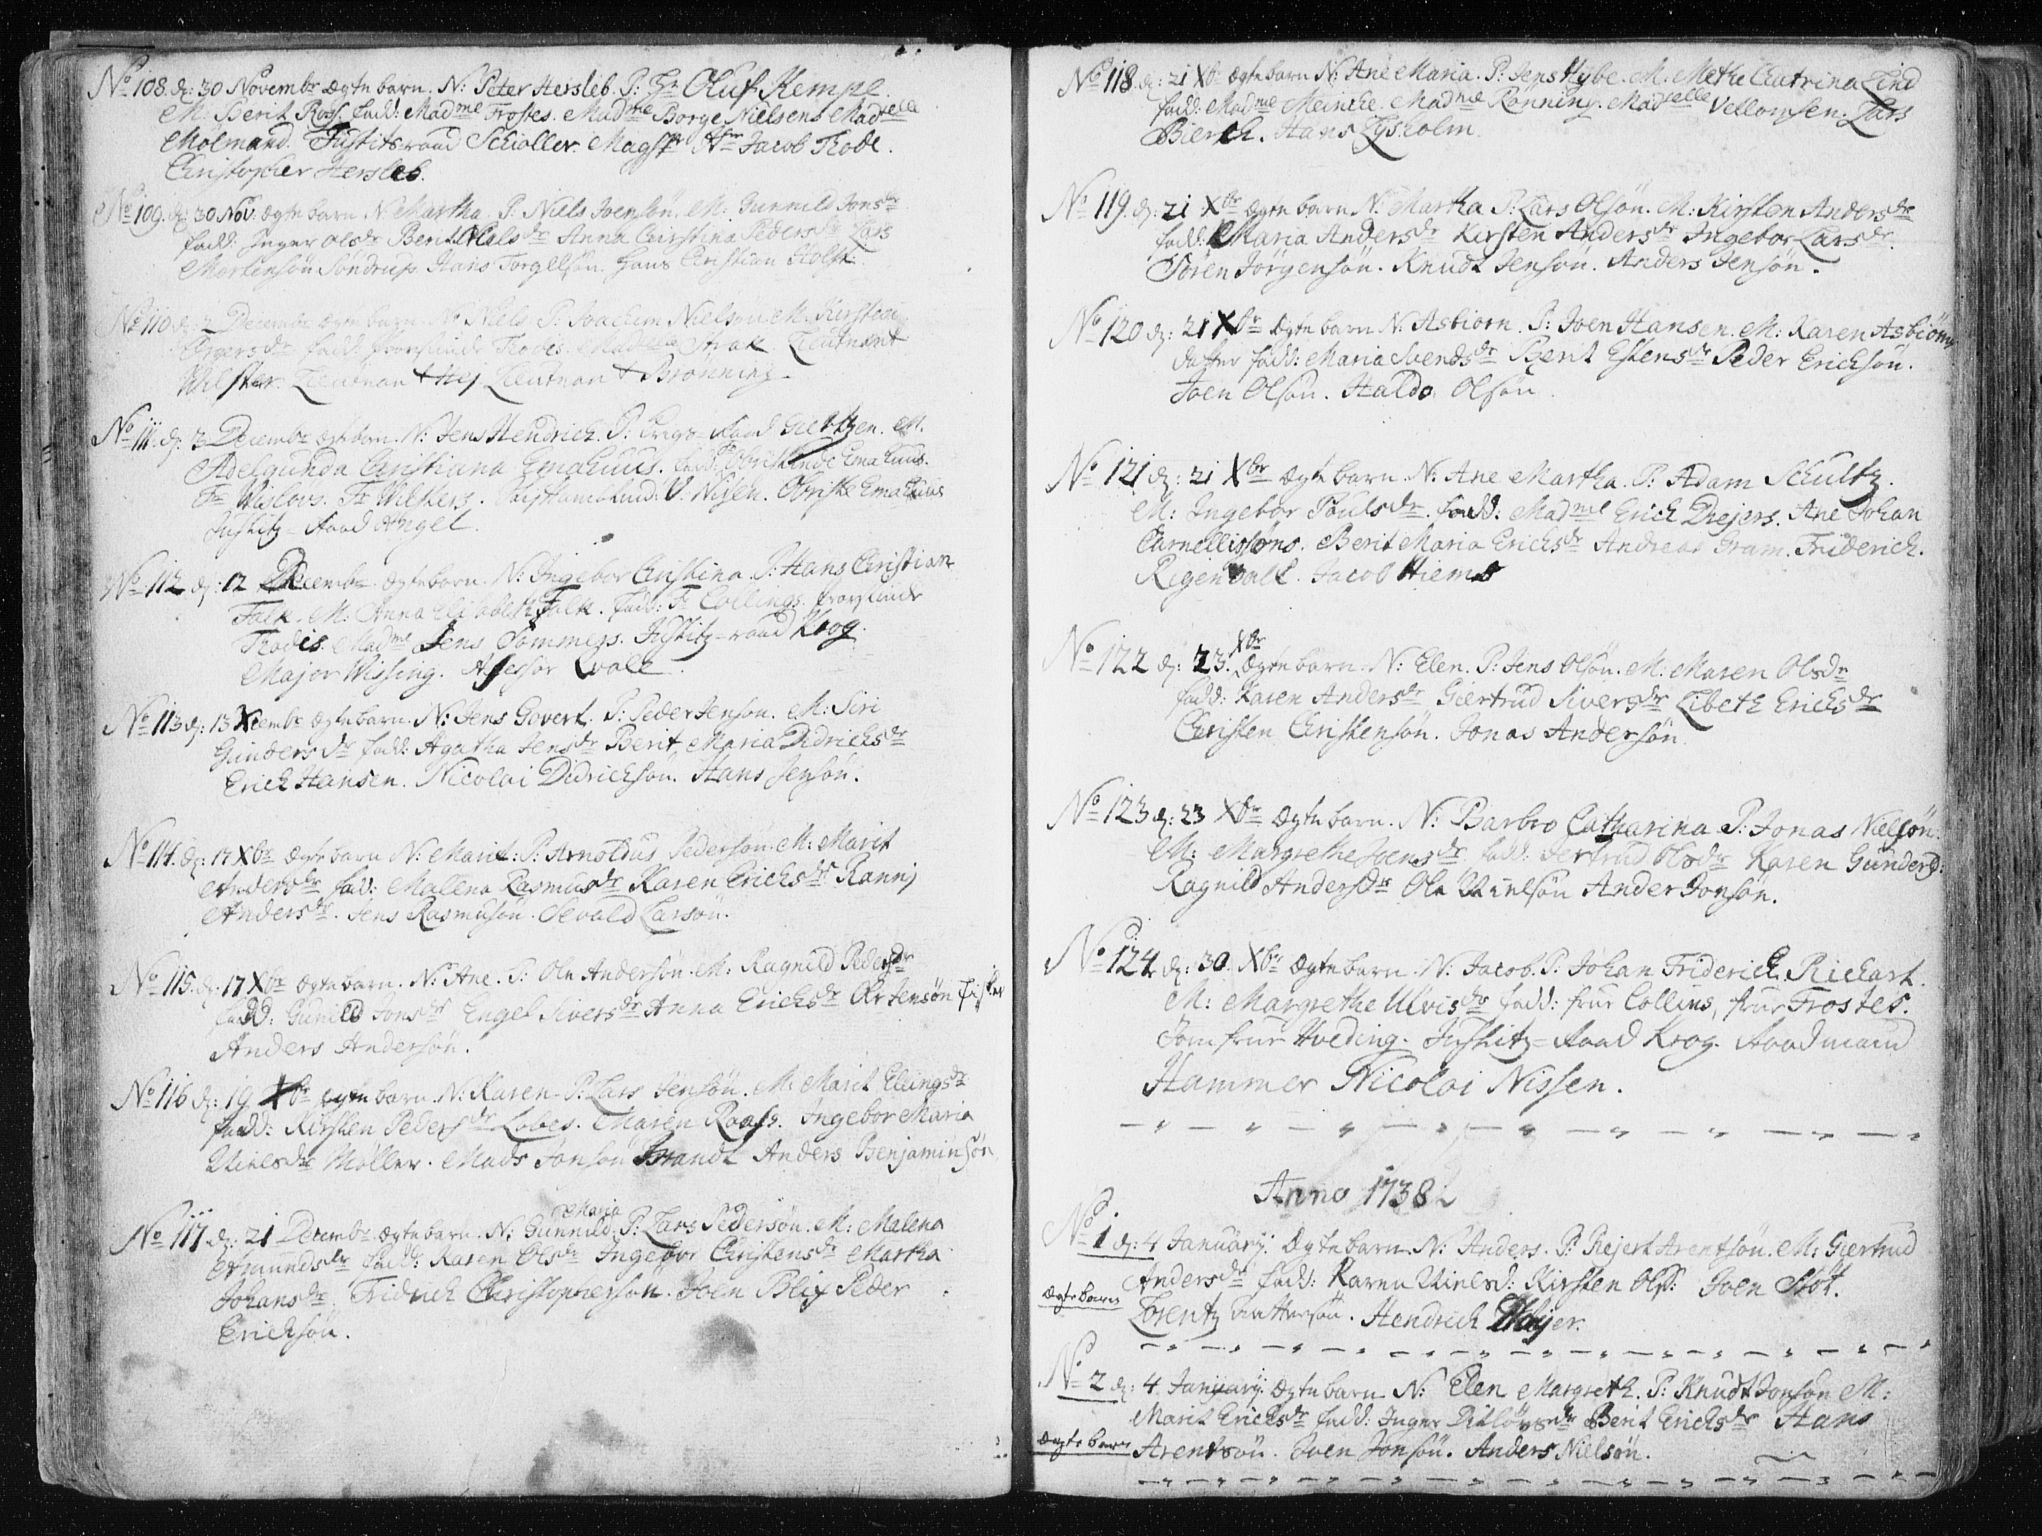 No 108. d: 30 Novembr Ægte barn. N: Peter Hersleb. P: Hr Oluf Kempe.
M: Berit Ross. fadd: Madme Frostes. Madme Borge Nielsens Madselle
Mølmand. Justitsraad Schiøller. Magstr Hr Jacob Thode.
Christopher Hersleb.
No 109. d: 30 Nov. Ægte barn N: Martha. P: Niels Joensøn. M: Gunnild Jonsdr
fadd: Inger Olsdr Berit Nielsdr Anna Christina Pedersdr Lars
Mortensøn Søndrup Hans Torgelsøn. Hans Christian Holst.
No 110. d: 2 Decembr Ægte barn. N: Niels P: Joachim Nielsøn M: Kirsten
fadd: Thodes. Madme Lieutnant
Wilster. Lieutnant Hej Lieutnant Brønning
No 111. d: 2 Decembr Ægte barn. N: Jens Hendrich. P: Krigs-Raad M.
Adelgunda Christiana Emahuus. fadd: Obristinde Emahuus.
Fr Wislovs. Fr Wilsters. V. Nissen. Obriste Emahuus
Justitz-Raad Angel.
No 112 d: 12 Decembr Ægte barn. N: Ingebor Christina. P: Hans Christian
Falk. M: Anna Elisabeth Falk. fadd: Fr Collings. Provstinde
Thodes. Madme Jens Sommers. Justitz-raad Krog.
Major Wissing. Assessor Qvale.
No 113 d: 13 Xcembr Ægte barn. N: Jens Govert. P: Peder Jenson. M: Siri
Gundersdr fadd: Agatha Jensdr Berit Maria Didrichsdr
Erich Hansen. Nicolai Didrichson. Hans Jensøn.
No 114. d: 17 Xbr Ægte barn N: Marit: P: Arnoldus Pederson. M: Marit
Andersdr fad: Malena Rasmusdr Karen Erichsdr Ranni
Andersdr. Jens Rasmusøn. Sevald Larsøn.
No 115. d: 17 Xbr Ægte barn. N: Ane. P: Ole Andersøn. M: Ragnild Pedersdr
fadd: Gunild Jonsdr Engel Siversdr Anna Erichsdr Ole Jensøn fisker
Anders Andersøn.
No 116 d: 19 Xbr Ægte barn. N: Karen. P: Lars Jensøn. M: Marit Ellingsdr
fadd: Kirsten Pedersdr Lobes. Maren Roass. Ingebor Maria
Nielsdr Møller. Mads Jonsøn Brandt Anders Benjaminsøn
No 117 d: 21 Decembr Ægte barn. N: Gunnild Maria P: Lars Pedersøn. M: Malena
Amundsdr fadd: Karen Olsdr Ingebor Christensdr Martha
Johansdr. Fridrich Christopherson. Joen Blix Peder
Erichsøn.
No 118 d: 21 Xbr Ægte barn N: Ane Maria. P: Jens Hybe. M: Methe Catrina Lind
fadd: Madme Meincke. Madme Rønning. Madselle Vellomsen. Lars
Bierch. Hans Lysholm.
No 119. d: 21 Xbr Ægte barn N: Martha P: Lars Olsøn. M: Kirsten Andersdr
fadd: Maria Andersdr Kirsten Andersdr Ingebor Larsdr
Søren Jørgensøn. Knudt Jensøn. Anders Jensøn.
No 120 d: 21 Xbr Ægte barn N. Asbiorn. P: Joen Hansen. M: Karen Asbiørns
datter fadd: Maria Svendsdr Berit Estensdr Peder Erichsøn.
Joen Olsøn. Haldo Olsøn.
No 121 d: 21 Xbr Ægte barn N: Ane Martha. P: Adam Schultz.
M: Ingebor Poulsdr. fadd: Madme Erich Drejers. Ane Johan
Carnellissøns. Berit Maria Erichsdr Andreas Gram. Friderich
Regenvalt. Jacob Hiems
No 122 d: 23. Xbr Ægte barn. N: Elen. P: Jens Olsøn. M: Maren Olsdr
fadd: Karen Andersdr Giertrud Siversdr Lisbeth Erichsdr
Christen Christensøn. Jonas Andersøn.
No 123 d: 23 Xbr Ægte barn. N: Barbro Catharina P: Jonas Nielsøn.
M: Margrethe Joensdr fadd: Sertrud Olsdr Karen Gunderd:
Ragnild Andersdr Ole Nielsøn Ander Jonsøn.
No 124 d: 30. Xbr Ægte barn. N: Jacob. P: Johan Friderich Richart.
M: Margrethe Ulvisdr fadd: frue Collins, frue Frostes.
Jomfrue Hveding. Justitz-Raad Krog. Raadmand
Hammer Nicolai Nissen.
Anno 1738
No 1 d: 4 Januarij. Ægte barn. N: Anders. P: Rejert Arentsøn. M: Giertrud
Andersdr fadd: Karen Nielsd: Kirsten Olsd: Joen Støt.
Ægte barn
Lorentz Hendrich Meyer.
No 2 d: 4. Januarij. Ægte barn N: Elen Margreth. P: Knudt Jonsøn M:
Marit Erichsdr fadd: Inger Ditløvsdr Berit Erichsdr Hans
Ægte barn
Arentsøn. Even Jonsøn. Anders Nielsøn.